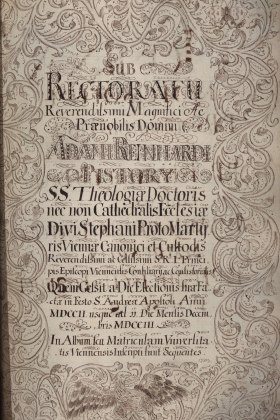 SUB
RECTORATU
Reverendissimi Magnifici Ac
Prænobilis Domini
ADAMI REINHARDI
PISTORY
SS. Theologiæ Doctoris
nec non Cathedralis Ecclesiæ
Divi Stephani Proto Marty
ris Viennæ Canonici et Custodis
Reverendissimi ac Celsissimi S R I Princi
pis Episcopi Viennensis Consiliarij, ac
a Die Electionis Suæ Fa
in Festo S. Andreæ Apostoli Anni
MDCCII usque ad Diem Mensis Decem
bris MDCCIII.
In Album seu Matriculam Universita
tis Viennensis Inscripti sunt Sequentes